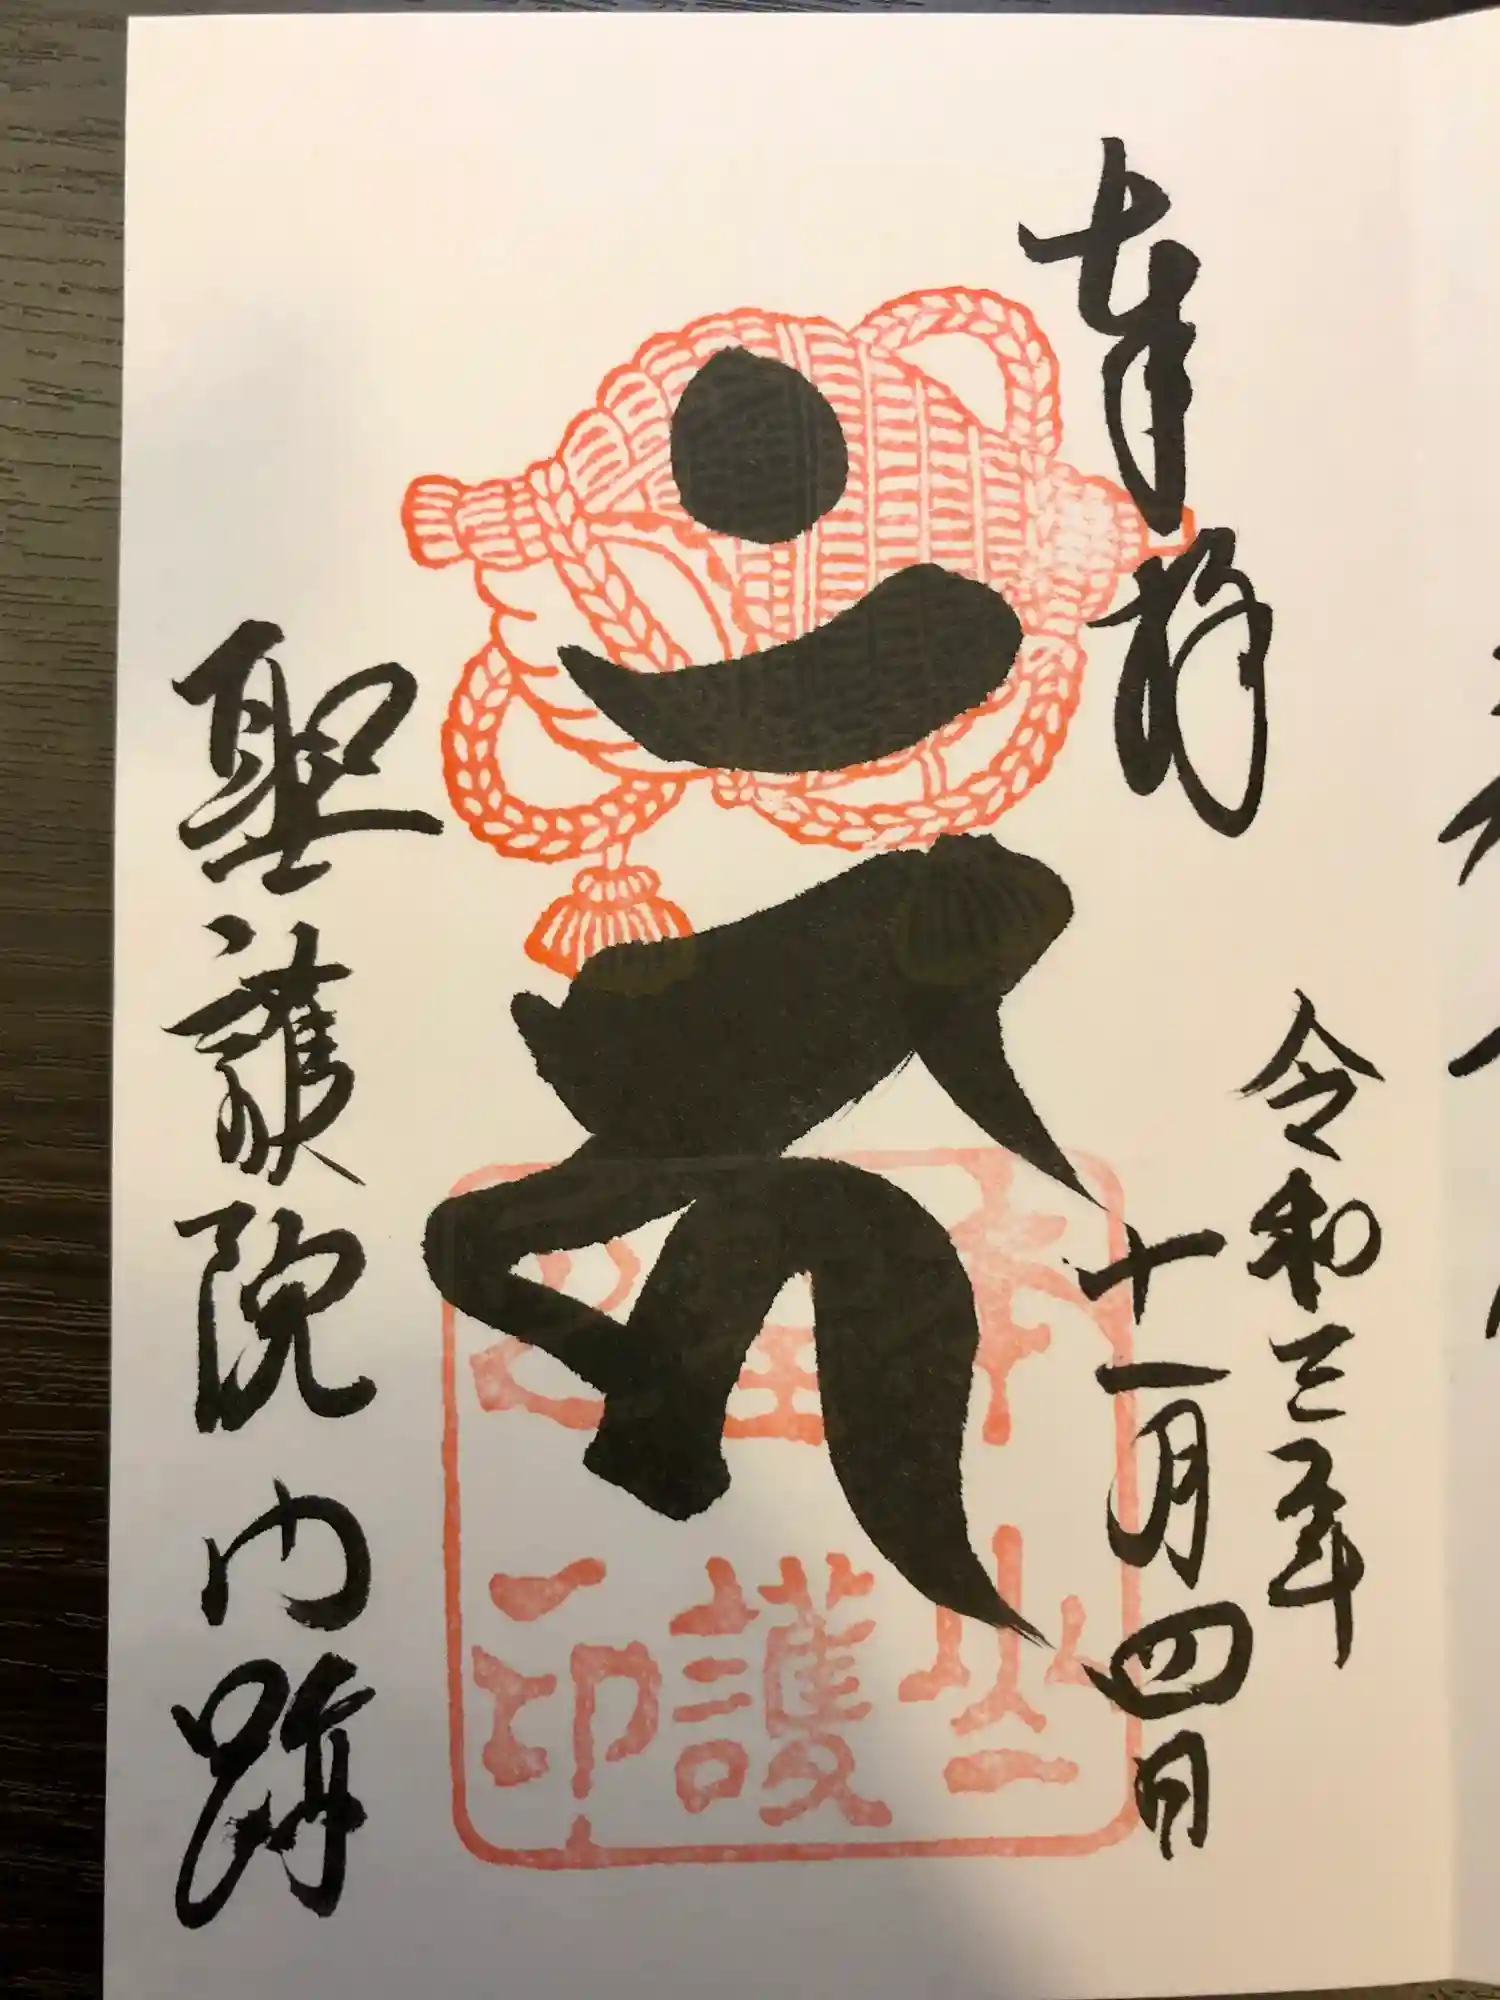 奉拝
令和三年
十一月四日
本山
聖護
院印
聖護院門跡